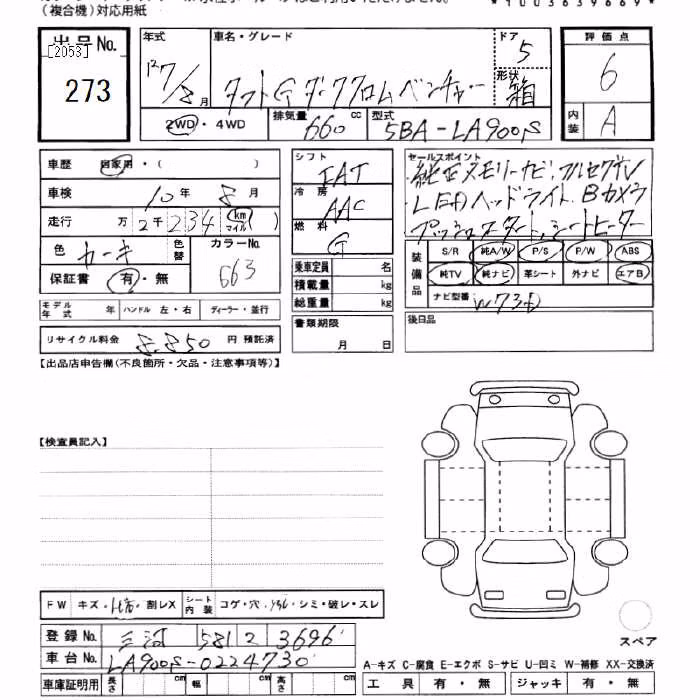 (複合機)対応用紙
*1003639669*
出品No.
[2053]
273
年式
127/8月
車名・グレード
タフトGダーククロムベンチャー
ドア
5
形状
箱
評価点
6
内装
A
2WD・4WD
排気量
660
cc
型式
5BA-LA900S
車歴
自家用・( )
車検
10年8月
走行
万2千234(km
マイル)
色
カーキ
色替
カラーNo.
663
保証書
有・無
シフト
IAT
冷房
AAC
燃料
G
乗車定員
名
積載量
kg
総重量
kg
セールスポイント
純正メモリーナビ、フルセグTV
LEDヘッドライト、Bカメラ
プッシュスタート、シートヒーター
装備品
S/R
純A/W
P/S
P/W
ABS
純TV
純ナビ
革シート
外ナビ
エアB
ナビ型番
W73D
モデル年式
年
ハンドル
左・右
ディーラー・並行
リサイクル料金
8,850
円 預託済
書類期限
月 日
後日品
【出品店申告欄(不良箇所・欠品・注意事項等)】
【検査員記入】
FW
キズ・ﾋ布・割レX
シート内装
コゲ・穴・ﾖｺﾞﾚ・シミ・破レ・スレ
登録No.
三河 581 2 3696
車台No.
LA900S-0224730
車庫証明用
長さ
cm
幅
cm
高さ
cm
スペア
A-キズ C-腐食 E-エクボ S-サビ U-凹ミ W-補修 XX-交換済
工具
有・無
ジャッキ
有・無